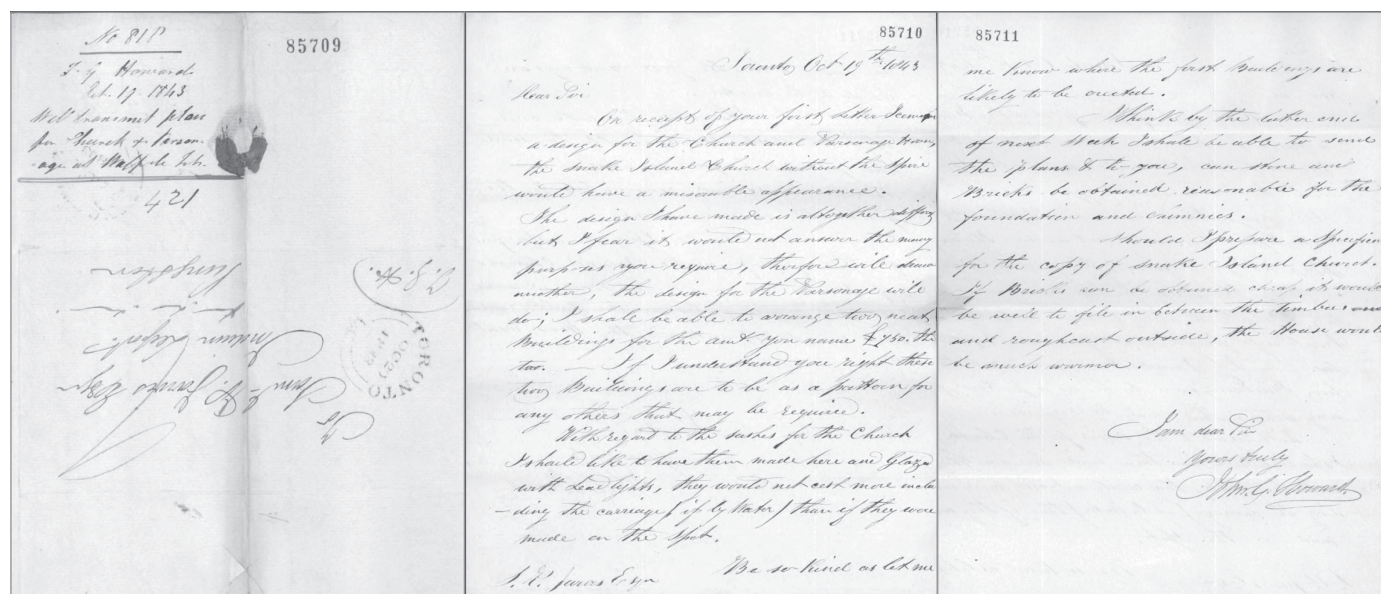 No 818
85709
J. G. Howard
Oct. 19. 1843
Will transmit plan
for Church & Parson-
age at Walpole Isl.
421
To
Saml. P. Jarvis Esqr
Indian Departt.
Kingston
J. G. H.
TORONTO
OC 20
1843
85710
Toronto Oct 19th 1843
Dear Sir
On receipt of your first Letter
a design for the Church and Parsonage House,
the Snake Island Church without the Spire
would have a miserable appearance.
The design I have made is altogether
but I fear it would not answer the many
purposes you require, therfore will draw
another, the design for the Parsonage will
do; I shall be able to arrange two neat
Buildings for the amt. you name £750. the
two. — If I understand you right these
two Buildings are to be as a pattern for
any others that may be require.
With regard to the sashes for the Church
I should like to have them made here and Glazed
with Lead lights, they would not cost more inclu
-ding the carriage (if by Water) than if they were
made on the Spot.
Be so kind as let me
S. P. Jarvis Esqr
85711
me know where the first Buildings are
likely to be erected.
I think by the latter end
of next Week I shall be able to send
the plans & to you, can stone and
Bricks be obtained reasonable for the
foundation and chimnies.
Should I prepare a Specifica
for the copy of Snake Island Church.
If Bricks can be obtained cheap it would
be well to fill in between the timbers and
and roughcast outside, the House would
be much warmer.
I am dear Sir
Yours truly
John G. Howard